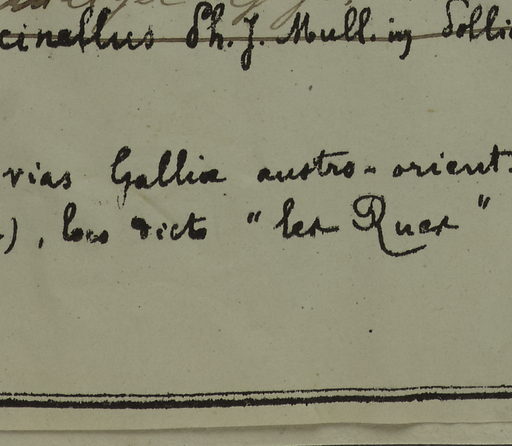 cinellus Ph. J. Mull. in Solli
vias Galliæ austro-orient.
), loco dicto "les Ruer"